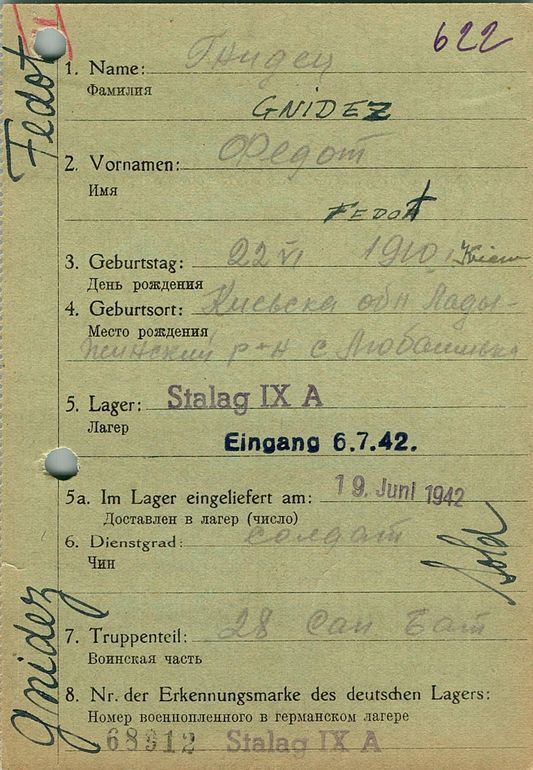 622
Fedot
1. Name: Гнидец
Фамилия
GNIDEZ
2. Vornamen: Федот
Имя
FEDOT
3. Geburtstag: 22 VI 1910, Kiew
День рождения
4. Geburtsort: Киевска обл Лады-
Место рождения
жинский р-н с
5. Lager: Stalag IX A
Лагер
Eingang 6.7.42.
5a. Im Lager eingeliefert am: 19. Juni 1942
Доставлен в лагер (число)
6. Dienstgrad: солдат
Чин
Sold
7. Truppenteil: 28 Сан Бат
Воинская часть
8. Nr. der Erkennungsmarke des deutschen Lagers:
Номер военнопленного в германском лагере
68912 Stalag IX A
Gnidez